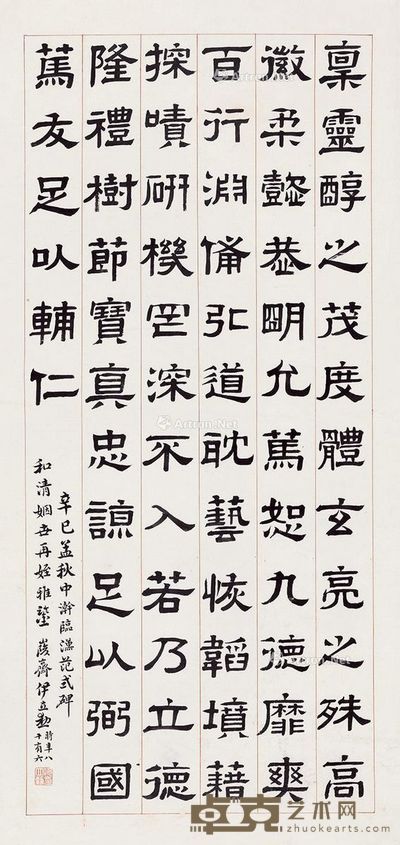 稟靈醇之茂度體玄亮之殊高
徽柔懿恭明允篤恕九德靡爽
百行淵備弘道耽藝恢韜墳藉
探嘖研機罔深不入若乃立德
隆禮樹節寶真忠諒足以弼國
篤友足以輔仁
辛巳孟秋中澣臨漢范式碑
和清姻世再姪雅鑒 峻齋伊立勳 時年八十有六
Artron.Net
卓克艺术网
zhuokearts.com